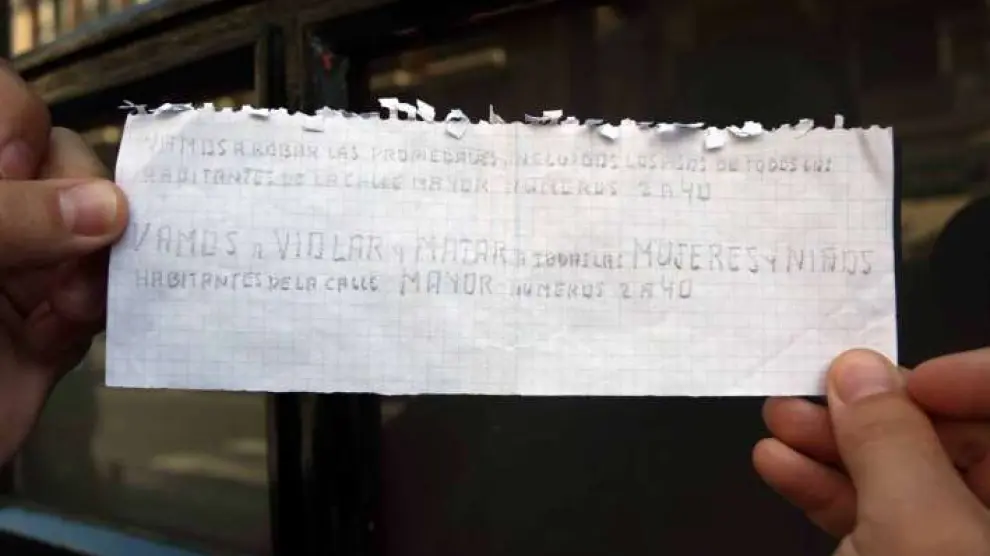 VAMOS A ROBAR LAS PROPIEDADES, INCLUIDOS LOS DE TODOS LOS
HABITANTES DE LA CALLE MAYOR NUMEROS 2 A 40
VAMOS A VIOLAR Y MATAR A TODAS LAS MUJERES Y NIÑOS
HABITANTES DE LA CALLE MAYOR NUMEROS 2 A 40